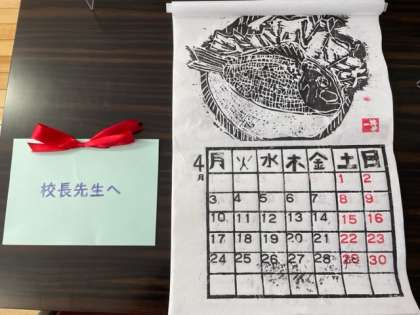 校長先生へ
4月
月 火 水 木 金 土 日
1 2
3 4 5 6 7 8 9
10 11 12 13 14 15 16
17 18 19 20 21 22 23
24 25 26 27 28 29 30